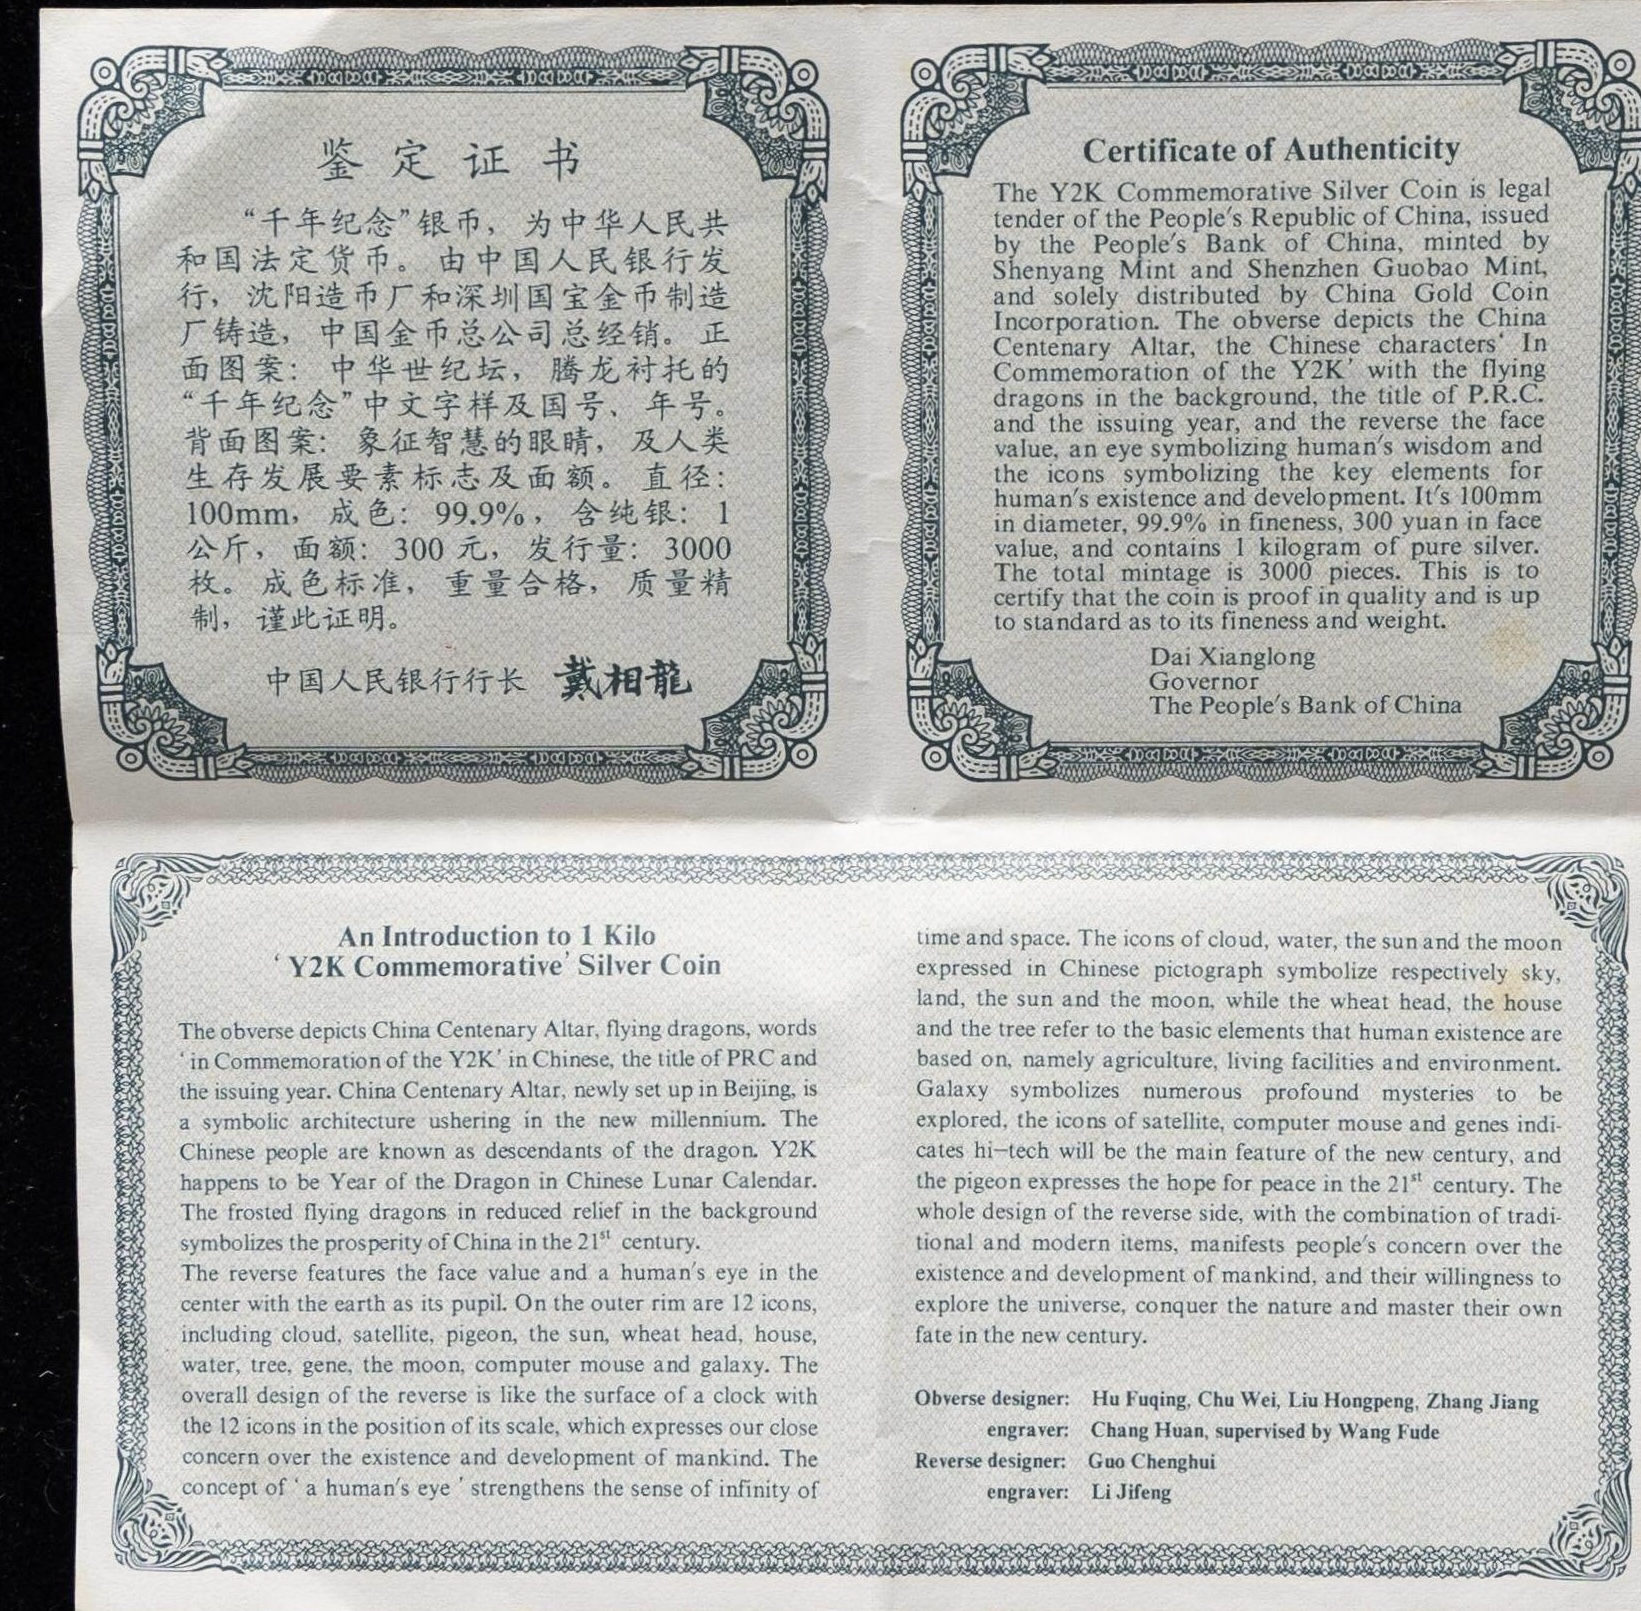 鉴定证书
“千年纪念”银币，为中华人民共
和国法定货币。由中国人民银行发
行，沈阳造币厂和深圳国宝金币制造
厂铸造，中国金币总公司总经销。正
面图案：中华世纪坛，腾龙衬托的
“千年纪念”中文字样及国号、年号。
背面图案：象征智慧的眼睛，及人类
生存发展要素标志及面额。直径：
100mm，成色：99.9%，含纯银：1
公斤，面额：300元，发行量：3000
枚。成色标准，重量合格，质量精
制，谨此证明。
中国人民银行行长 戴相龍
Certificate of Authenticity
The Y2K Commemorative Silver Coin is legal
tender of the People's Republic of China, issued
by the People's Bank of China, minted by
Shenyang Mint and Shenzhen Guobao Mint,
and solely distributed by China Gold Coin
Incorporation. The obverse depicts the China
Centenary Altar, the Chinese characters‘ In
Commemoration of the Y2K’ with the flying
dragons in the background, the title of P.R.C.
and the issuing year, and the reverse the face
value, an eye symbolizing human's wisdom and
the icons symbolizing the key elements for
human's existence and development. It's 100mm
in diameter, 99.9% in fineness, 300 yuan in face
value, and contains 1 kilogram of pure silver.
The total mintage is 3000 pieces. This is to
certify that the coin is proof in quality and is up
to standard as to its fineness and weight.
Dai Xianglong
Governor
The People's Bank of China
An Introduction to 1 Kilo
‘ Y2K Commemorative’ Silver Coin
The obverse depicts China Centenary Altar, flying dragons, words
‘ in Commemoration of the Y2K’ in Chinese, the title of PRC and
the issuing year. China Centenary Altar, newly set up in Beijing, is
a symbolic architecture ushering in the new millennium. The
Chinese people are known as descendants of the dragon. Y2K
happens to be Year of the Dragon in Chinese Lunar Calendar.
The frosted flying dragons in reduced relief in the background
symbolizes the prosperity of China in the 21st century.
The reverse features the face value and a human's eye in the
center with the earth as its pupil. On the outer rim are 12 icons,
including cloud, satellite, pigeon, the sun, wheat head, house,
water, tree, gene, the moon, computer mouse and galaxy. The
overall design of the reverse is like the surface of a clock with
the 12 icons in the position of its scale, which expresses our close
concern over the existence and development of mankind. The
concept of ‘ a human's eye ’ strengthens the sense of infinity of
time and space. The icons of cloud, water, the sun and the moon
expressed in Chinese pictograph symbolize respectively sky,
land, the sun and the moon, while the wheat head, the house
and the tree refer to the basic elements that human existence are
based on, namely agriculture, living facilities and environment.
Galaxy symbolizes numerous profound mysteries to be
explored, the icons of satellite, computer mouse and genes indi-
cates hi-tech will be the main feature of the new century, and
the pigeon expresses the hope for peace in the 21st century. The
whole design of the reverse side, with the combination of tradi-
tional and modern items, manifests people's concern over the
existence and development of mankind, and their willingness to
explore the universe, conquer the nature and master their own
fate in the new century.
Obverse designer: Hu Fuqing, Chu Wei, Liu Hongpeng, Zhang Jiang
engraver: Chang Huan, supervised by Wang Fude
Reverse designer: Guo Chenghui
engraver: Li Jifeng